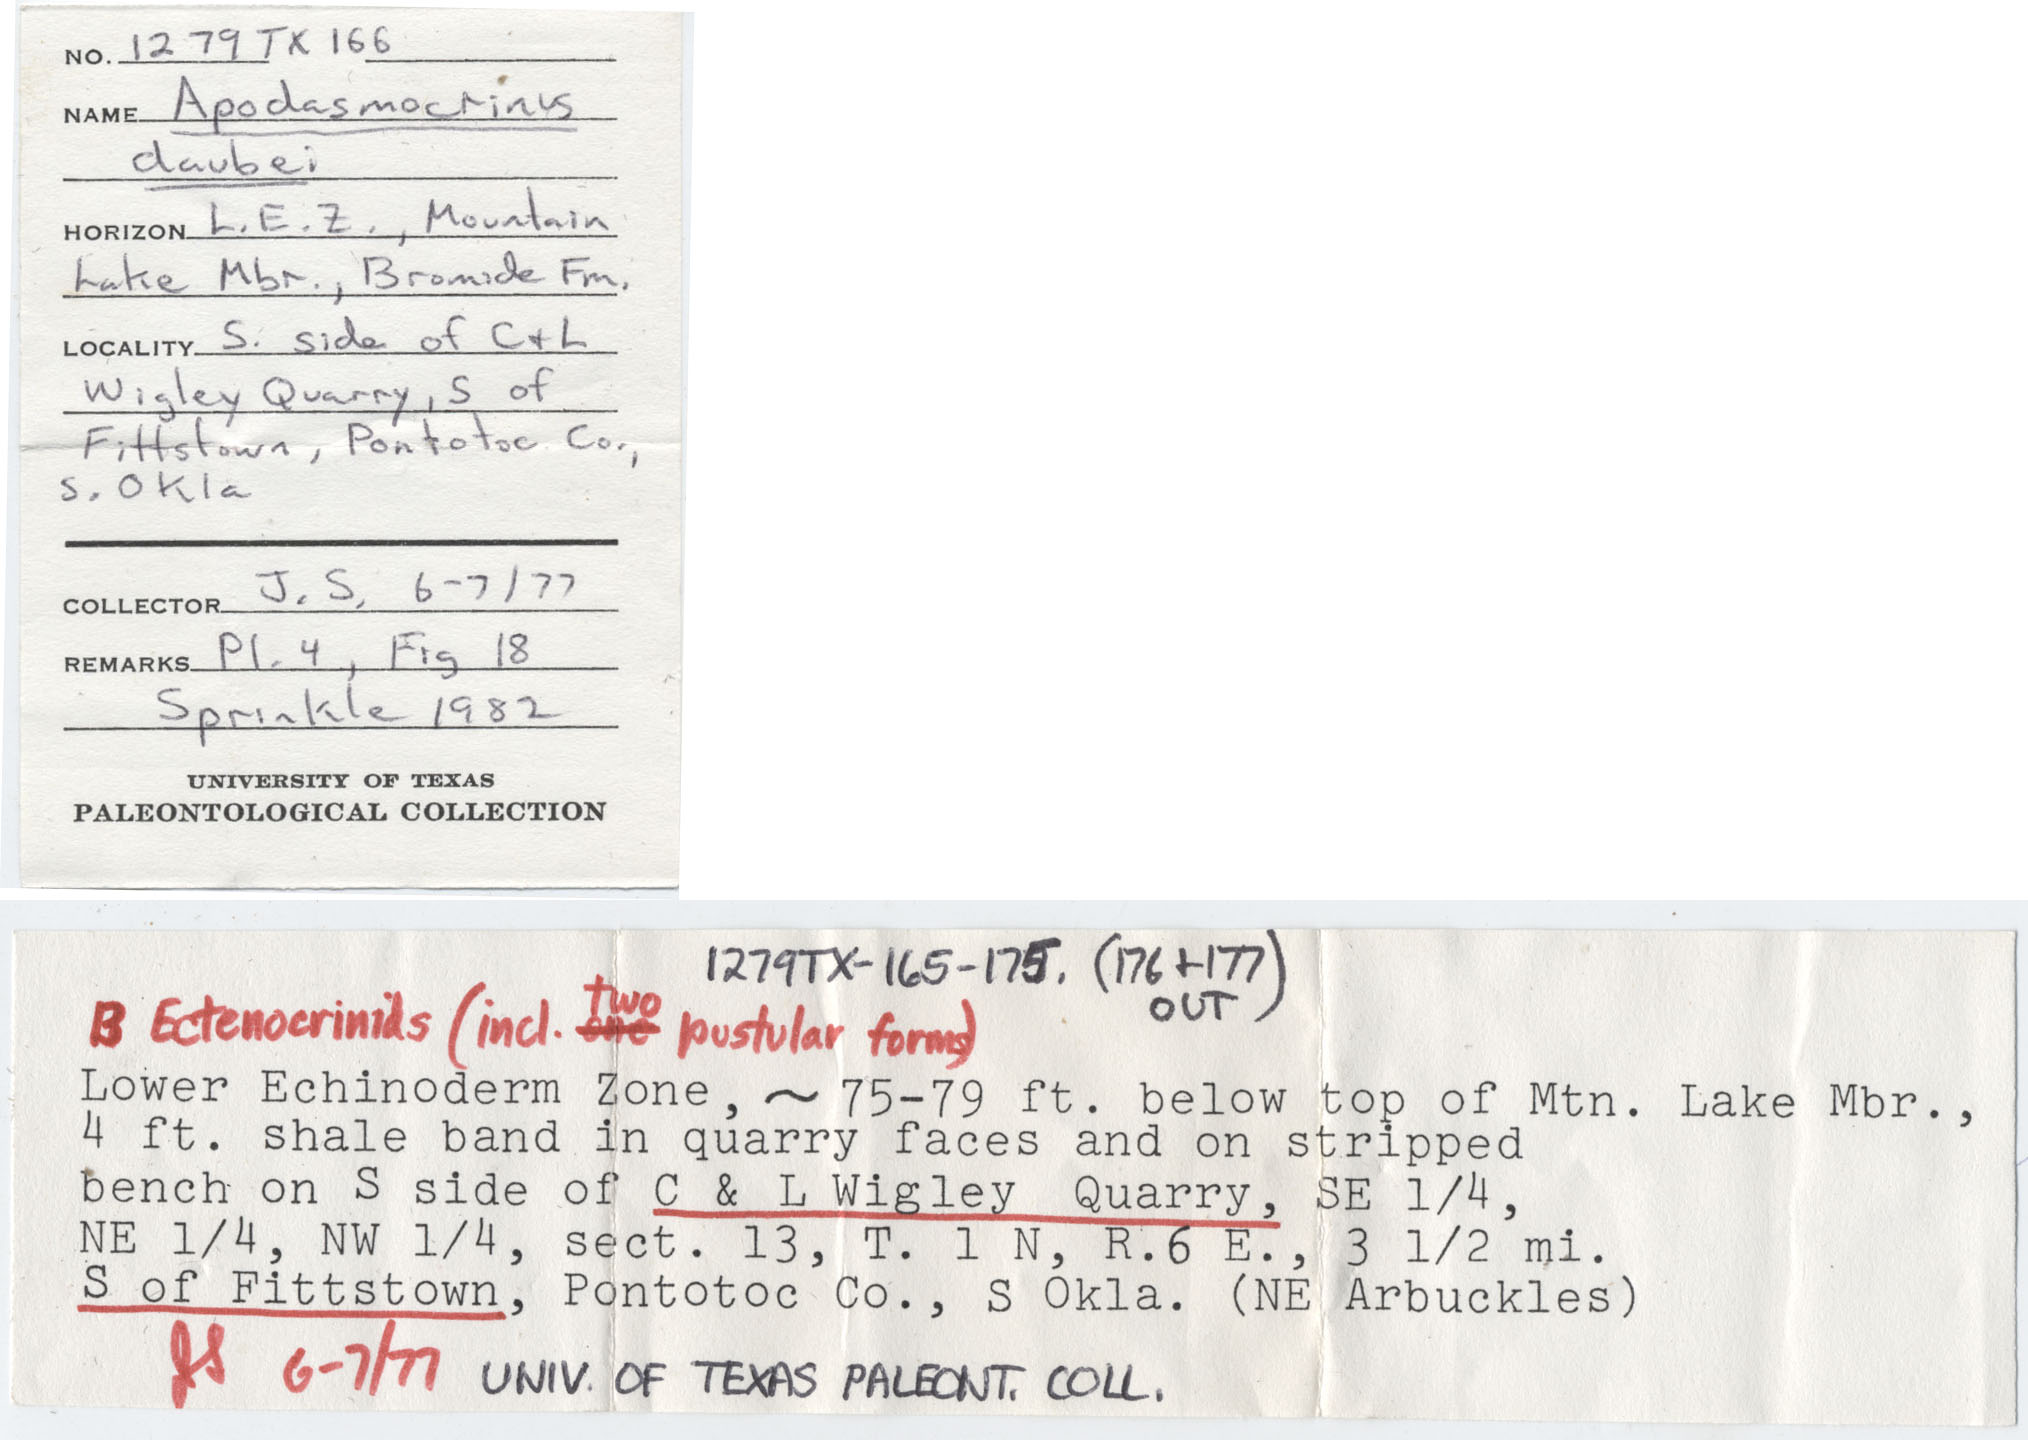 NO. 1279TX166
NAME Apodasmocrinus
daubei
HORIZON L.E.Z., Mountain
Lake Mbr., Bromide Fm.
LOCALITY S. side of C+L
Wigley Quarry, S of
Fittstown, Pontotoc Co.,
S. Okla
COLLECTOR J.S. 6-7/77
REMARKS Pl. 4, Fig 18
Sprinkle 1982
UNIVERSITY OF TEXAS
PALEONTOLOGICAL COLLECTION
1279TX-165-175. (176+177)
OUT
Ectenocrinids (incl. one two pustular forms)
Lower Echinoderm Zone, ~ 75-79 ft. below top of Mtn. Lake Mbr.,
4 ft. shale band in quarry faces and on stripped
bench on S side of C & L Wigley Quarry, SE 1/4,
NE 1/4, NW 1/4, sect. 13, T. 1 N, R.6 E., 3 1/2 mi.
S of Fittstown, Pontotoc Co., S Okla. (NE Arbuckles)
JS 6-7/77 UNIV. OF TEXAS PALEONT. COLL.